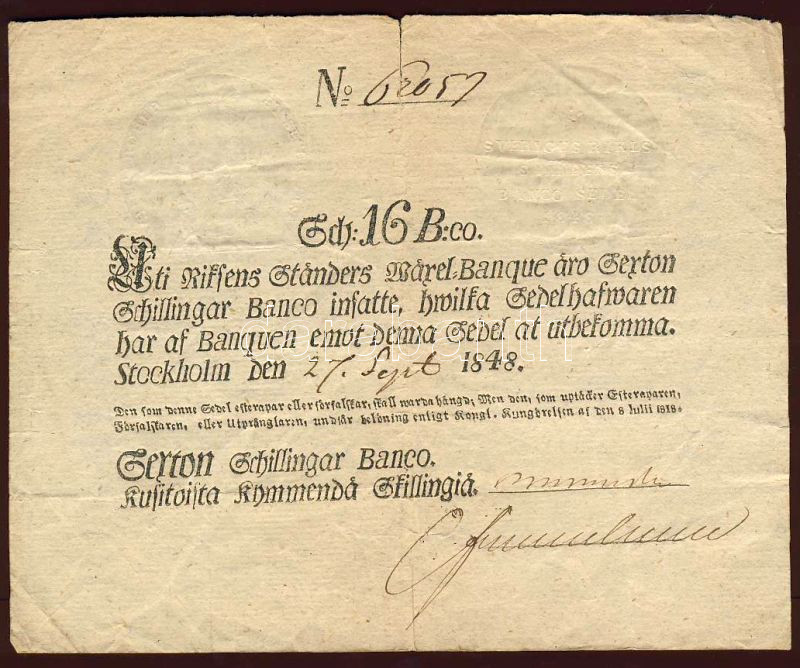 No 62057
SVERIGES RIKES
Sch: 16 B:co.
Uti Riksens Ständers Wäxel-Banque äro Sexton
Schillingar Banco insatte, hwilka Sedelhafwaren
har af Banquen emot denna Sedel at utbekomma.
Stockholm den 27. Sept 1848.
Den som denne Sedel efterapar eller förfalskar, skall warda hängd; Men den, som uptäcker Efteraparen,
Förfalskaren, eller Utprånglaren, undfår belöning enligt Kongl. Kungörelsen af den 8 Julii 1818.
Sexton Schillingar Banco.
Kusitoista Kymmendä Skillingiä.